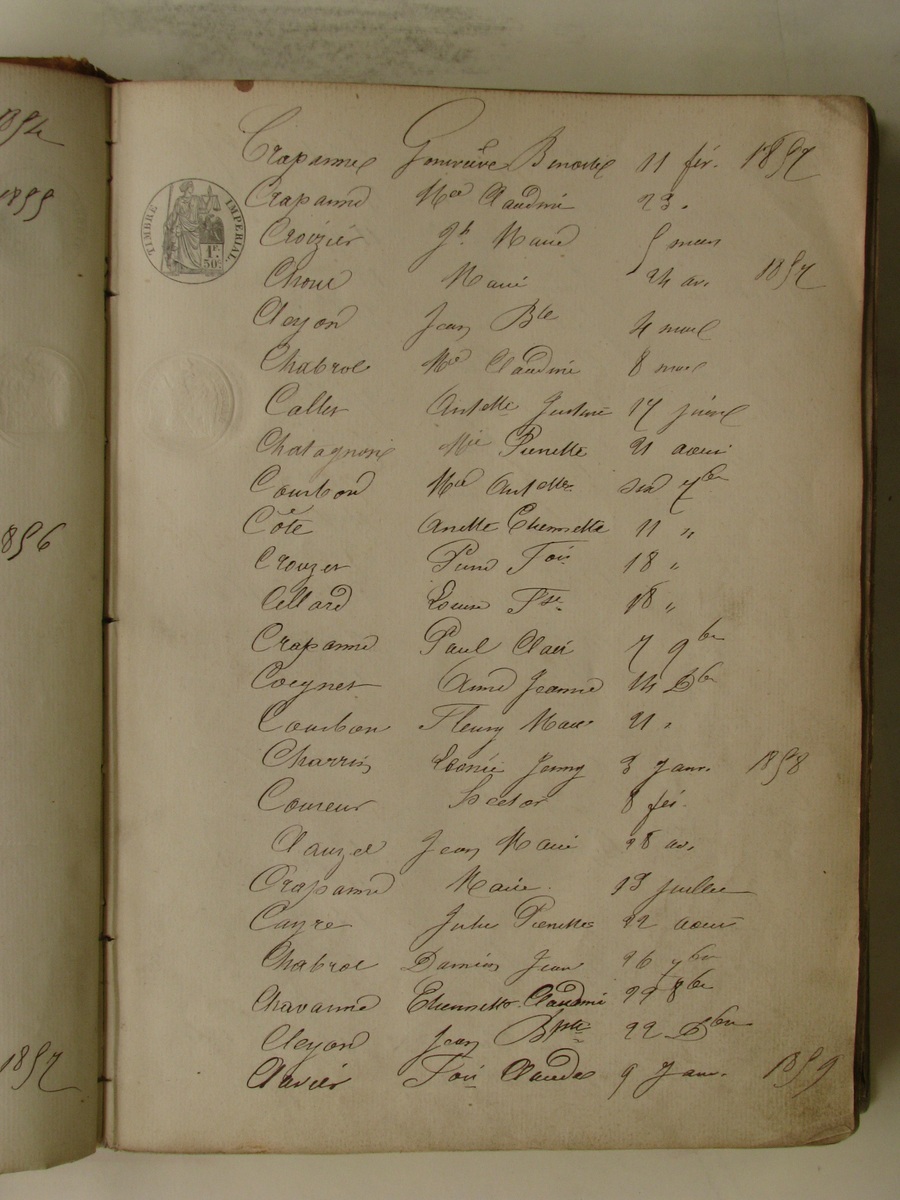 1854
1855
1856
1857
TIMBRE IMPERIAL
1F. 50c.
Crapanne Geneviève Benoite 11 fév. 1857
Crapanne Mie Claudine 23 "
Crozier Jh. Marie 5 mars
Choue Marie 24 av. 1857
Cleyon Jean Bte 4 mai
Chabrol Mie Claudine 8 mai
Callet Antette Justine 17
Chatagnon Mie Pierrette 21 aout
Courbon Mie Antette 7bre
Côte Anette Etiennette 11 "
Crouzet Pierre Fois 18 "
Cellard Louise Fse 18 "
Crapanne Paul Clair 7 9bre
Coeynet Anne Jeanne 14 Dbre
Courbon Fleury Marie 21 "
Charrin Leonie Jenny 3 Janv. 1858
Coureur Hector 8 fév.
Clauzel Jean Marie 28 av.
Crapanne Marie 13 juillet
Cayre Julie Pierrette 22 aout
Chabrol Damien Jean 26 7bre
Chavanne Etiennette Claudine 29 8bre
Cleyon Jean Bpte 22 Dbre
Clavier Fois Claude 9 Janv. 1859